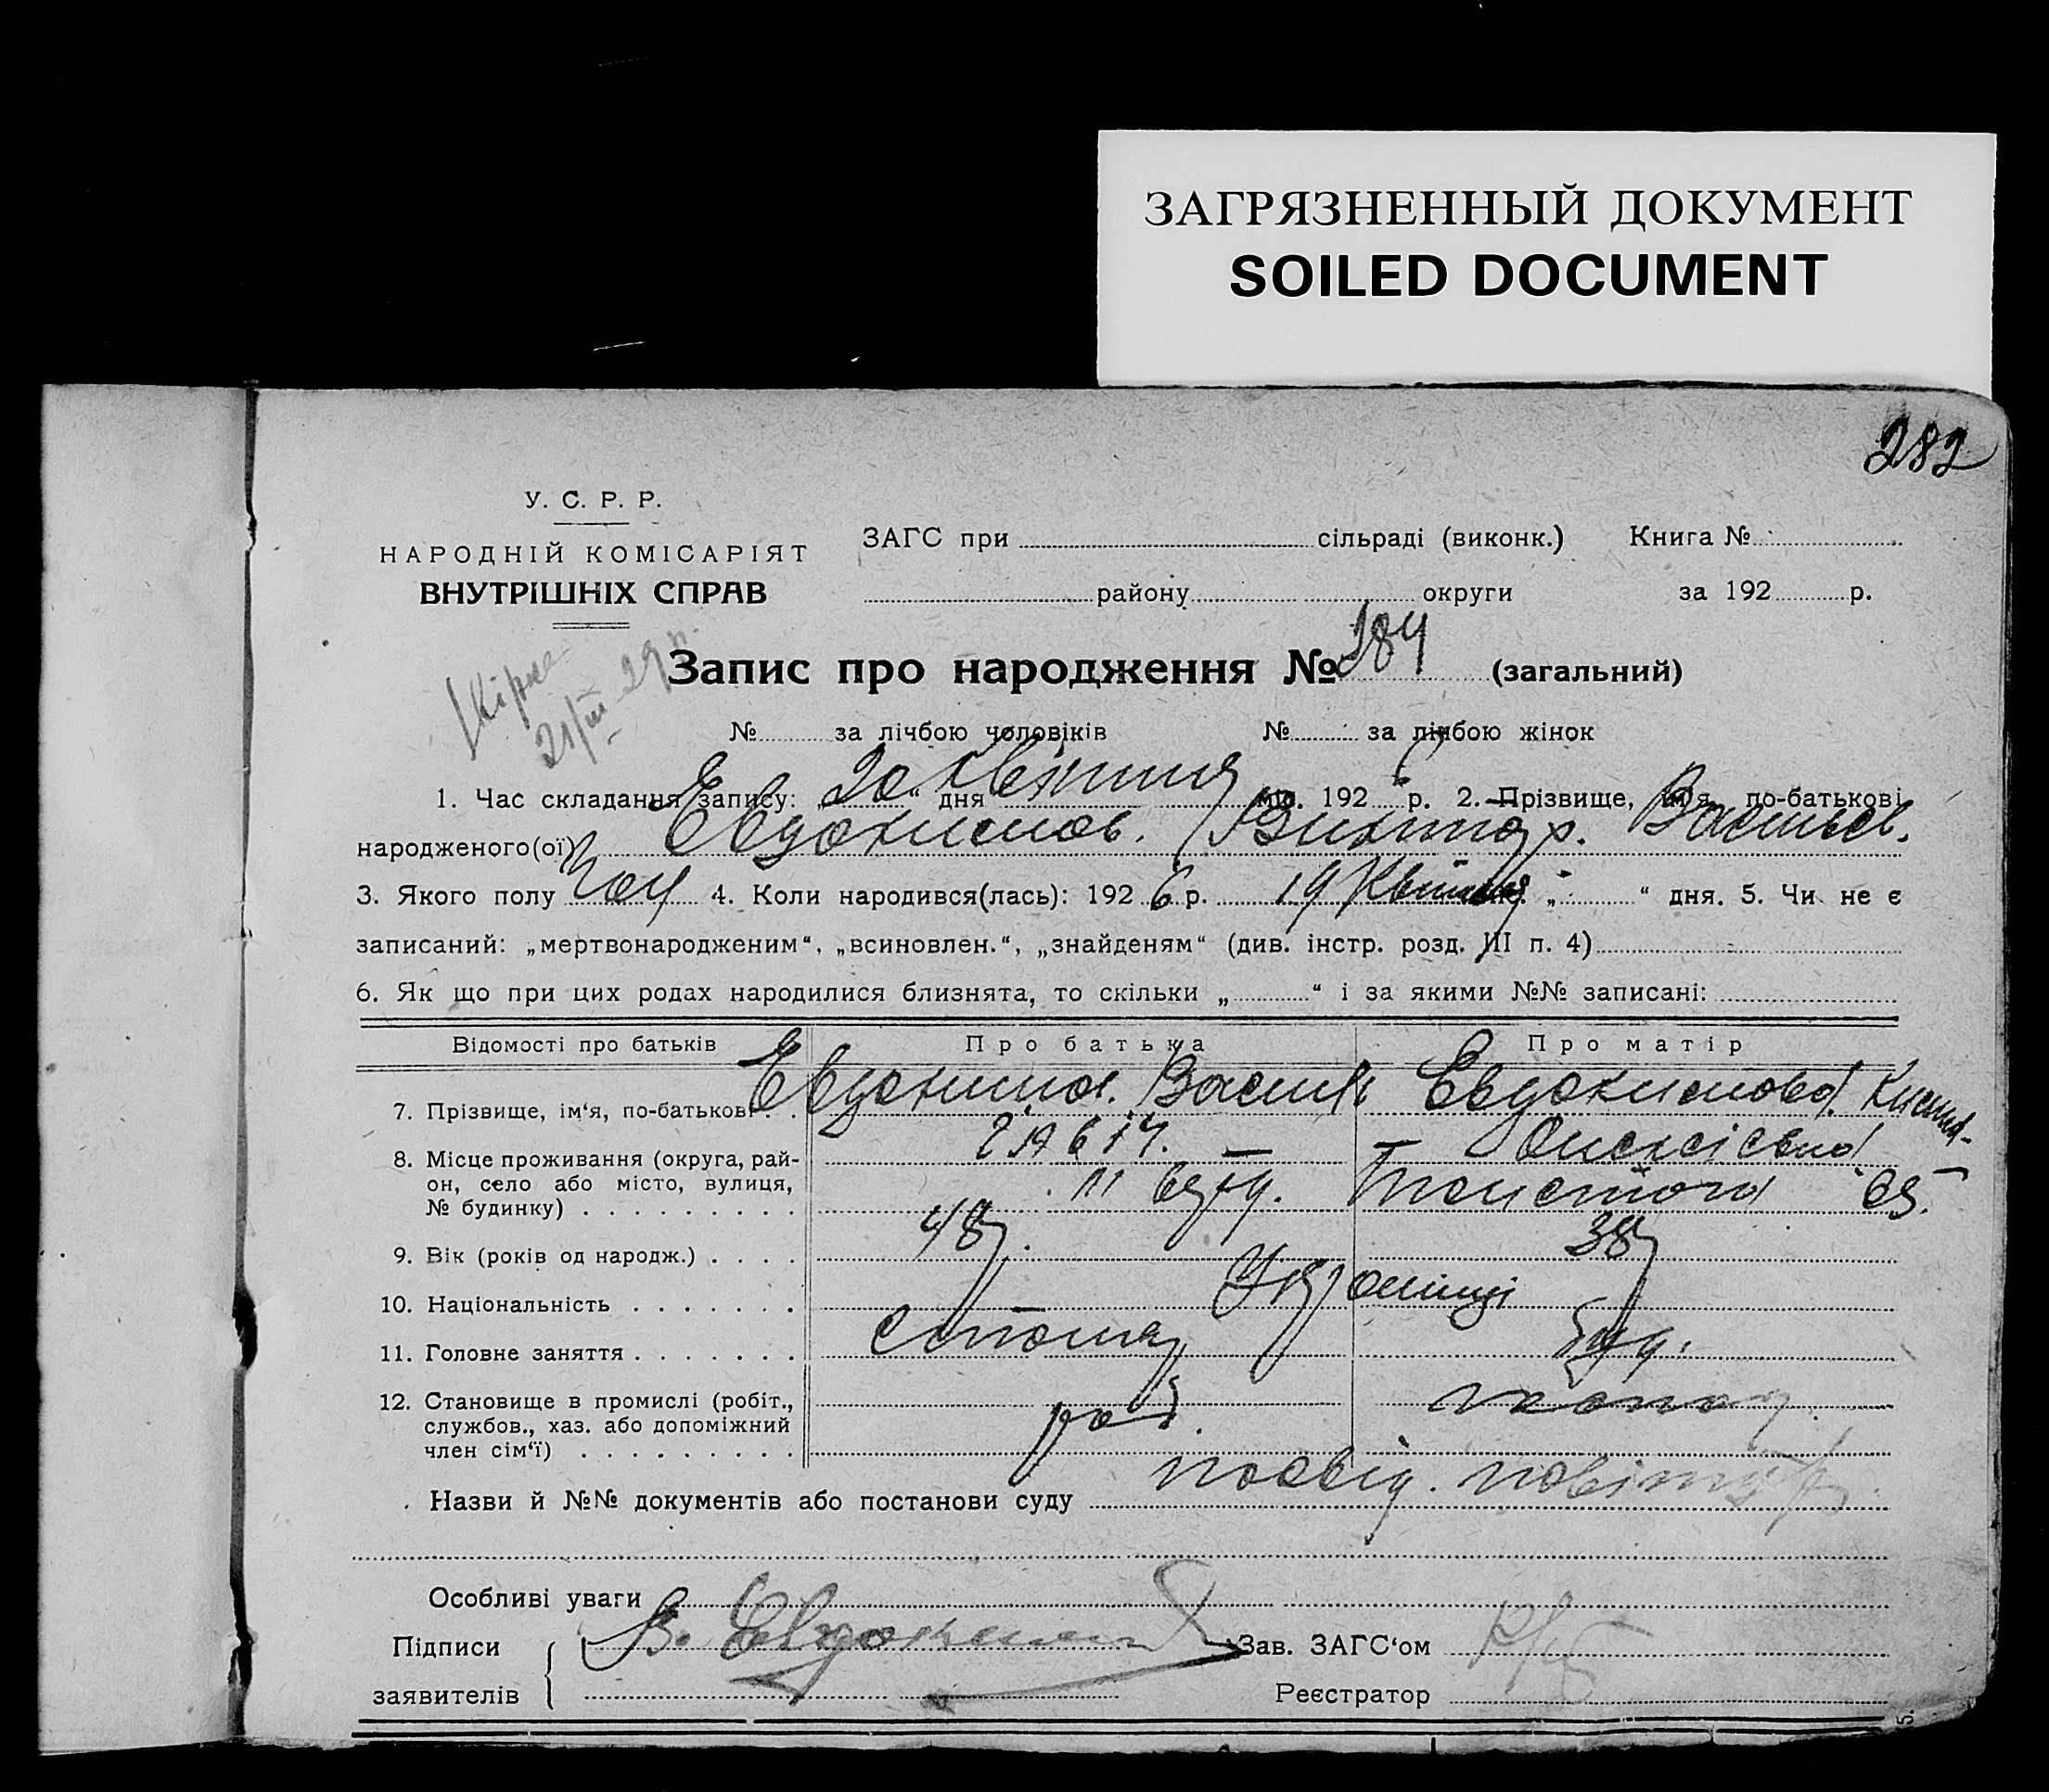 ЗАГРЯЗНЕННЫЙ ДОКУМЕНТ
SOILED DOCUMENT
282
У. С. Р. Р.
НАРОДНІЙ КОМІСАРІЯТ
ВНУТРІШНІХ СПРАВ
ЗАГС при сільраді (виконк.) Книга №
району округи за 192 р.
Запис про народження № 284 (загальний)
№ за лічбою чоловіків № за лічбою жінок
1. Час складання запису: „20“ дня Квітня міс. 1926 р. 2. Прізвище, ім'я, по-батькові
народженого(ої) Евдокимов. Виктор. Васильев.
3. Якого полу Чол 4. Коли народився(лась): 1926 р. 19 Квітня міс. „ “ дня. 5. Чи не є
записаний: „мертвонародженим“, „всиновлен.“, „знайденям“ (див. інстр. розд. III п. 4)
6. Як що при цих родах народилися близнята, то скільки „ “ і за якими №№ записані:
Відомості про батьків Про батька Про матір
7. Прізвище, ім'я, по-батькові Евдоким. Василь Евдокимова
8. Місце проживання (округа, рай-
он, село або місто, вулиця,
№ будинку)
9. Вік (років од народж.) 48 38
10. Національність Українці
11. Головне заняття столяр
12. Становище в промислі (робіт.,
службов., хаз. або допоміжний
член сім'ї) роб.
Назви й №№ документів або постанови суду посвід.
Особливі уваги
Підписи В. Евдокимов Зав. ЗАГС'ом
заявителів Реєстратор